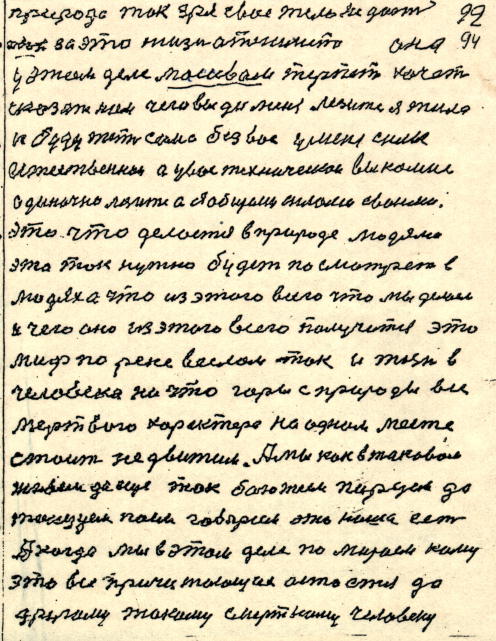 природа так зря свое тело не дает 92
за это жизь отнимит она 94
у этом деле массвам терпит хочет
сказат нам чего вы до меня лезите я жила
и буду жить сама без вас у меня силы
естественная а у вас техническая вы ко мне
одиночно лезите а я общими силами своими.
это что делается в природе людями
эта так нужно будет посмотреть в
людях а что из этого всего что мы делаем
и чего оно из этого всего получится это
миф по реке веслом так и жизн в
человека на что горы с природы все
мертвого характера на одном месте
стоит недвижем. А мы как в таковом
живем да еще так баюкаем танцуем да
поем говорим это наша ест
А когда мы в этом деле помираем кому
это все причитающия остается да
другому такому смертному человеку